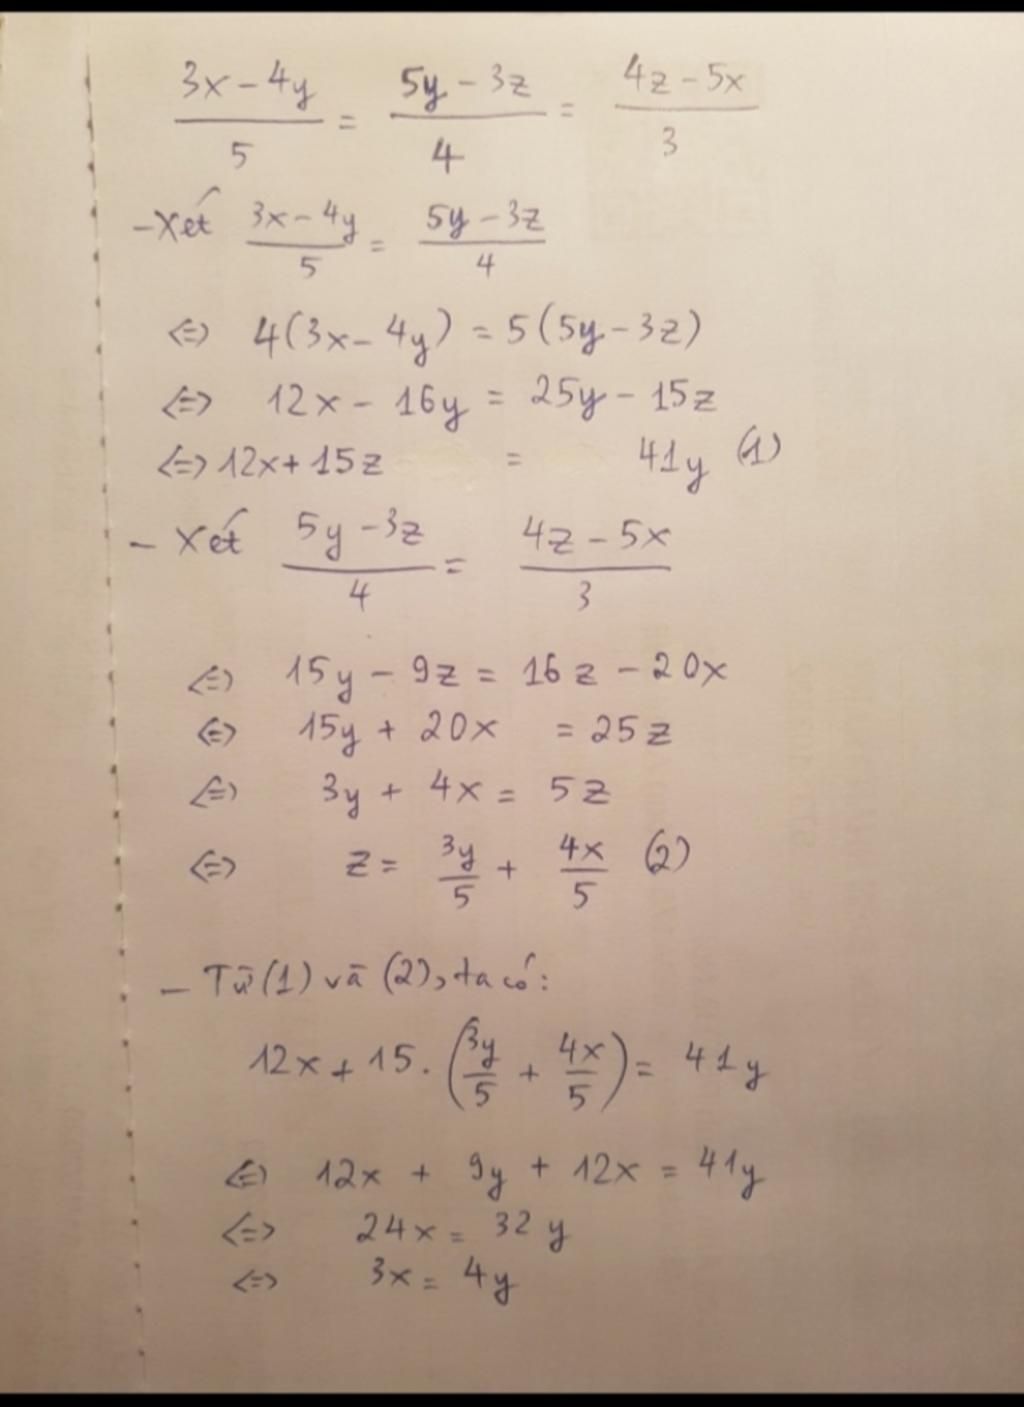 (3x - 4y)/5 = (5y - 3z)/4 = (4z - 5x)/3
- Xét (3x - 4y)/5 = (5y - 3z)/4
<=> 4(3x - 4y) = 5(5y - 3z)
<=> 12x - 16y = 25y - 15z
<=> 12x + 15z = 41y (1)
- Xét (5y - 3z)/4 = (4z - 5x)/3
<=> 15y - 9z = 16z - 20x
<=> 15y + 20x = 25z
<=> 3y + 4x = 5z
<=> z = 3y/5 + 4x/5 (2)
- Từ (1) và (2), ta có:
12x + 15.(3y/5 + 4x/5) = 41y
<=> 12x + 9y + 12x = 41y
<=> 24x = 32y
<=> 3x = 4y